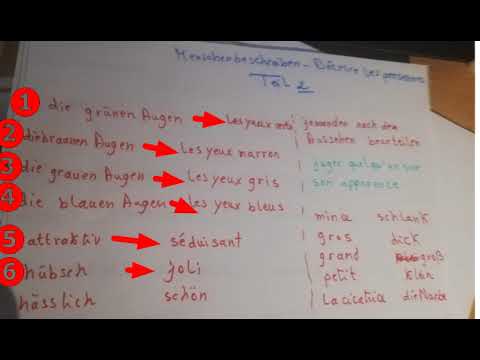 Menschenbeschreiben - Décrire les personnes
Teil 2
1 die grünen Augen Les yeux verts
2 die braunen Augen Les yeux marron
3 die grauen Augen Les yeux gris
4 die blauen Augen Les yeux bleus
5 attraktiv séduisant
6 hübsch joli
hässlich schön
jemanden nach dem
Aussehen beurteilen
juger quelqu'un sur
son apparence
mince schlank
gros dick
grand groß
petit klein
La cicatrice die Narbe